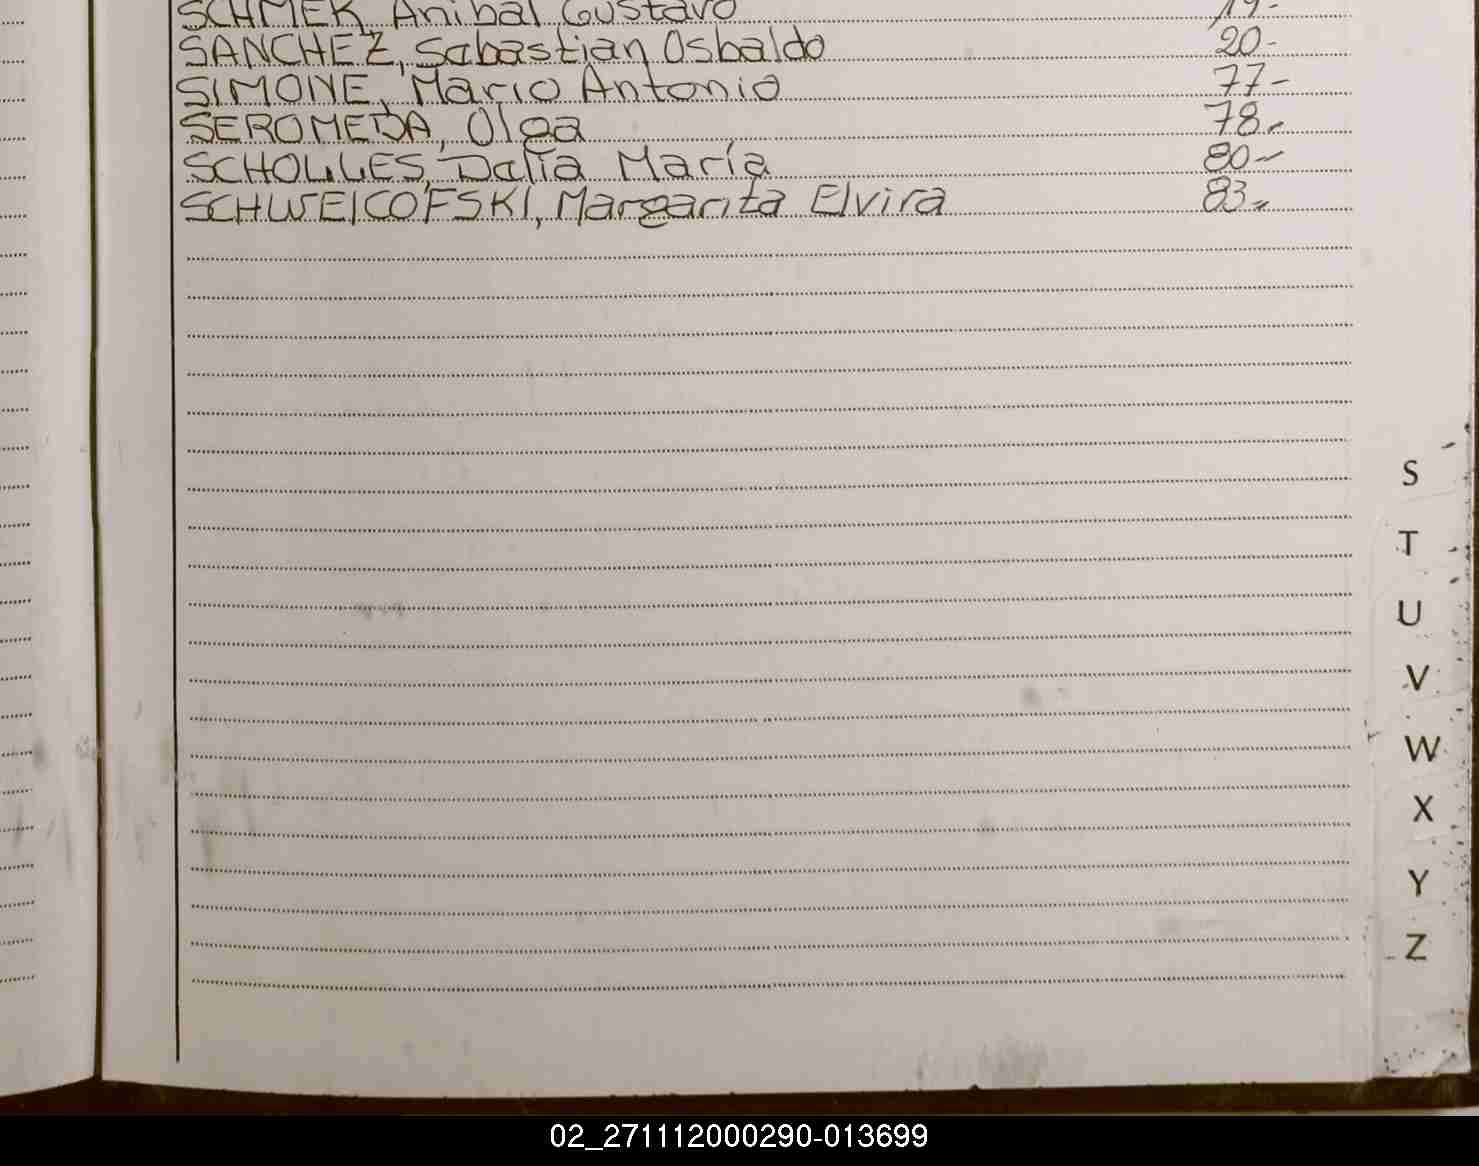 SCHMEK, Anibal Gustavo 19-
SANCHEZ, Sabastian Osbaldo 20-
SIMONE, Mario Antonio 77-
SEROMEDA, Olga 78-
SCHOLLES, Dalia María 80-
SCHWEICOFSKI, Margarita Elvira 83-
S
T
U
V
W
X
Y
Z
02_271112000290-013699